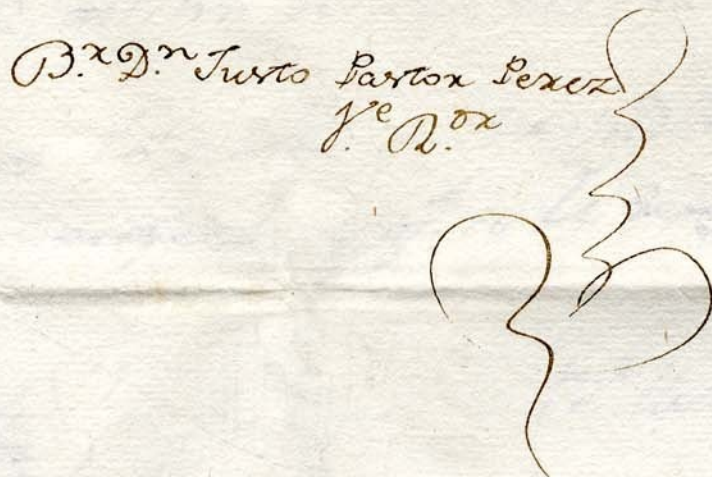 B.r D.n Justo Pastor Perez
V.e R.or